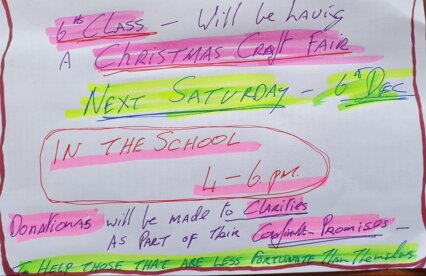 6th CLASS - Will be having
A CHRISTMAS Craft FAIR
NEXT SATURDAY - 6th DEC
IN THE SCHOOL
4-6 p.m.
Donations will be made to Clarities
AS PART OF Their Confirmation Promises -
To HELP THOSE THAT ARE LESS FORTUNATE Than Themselves